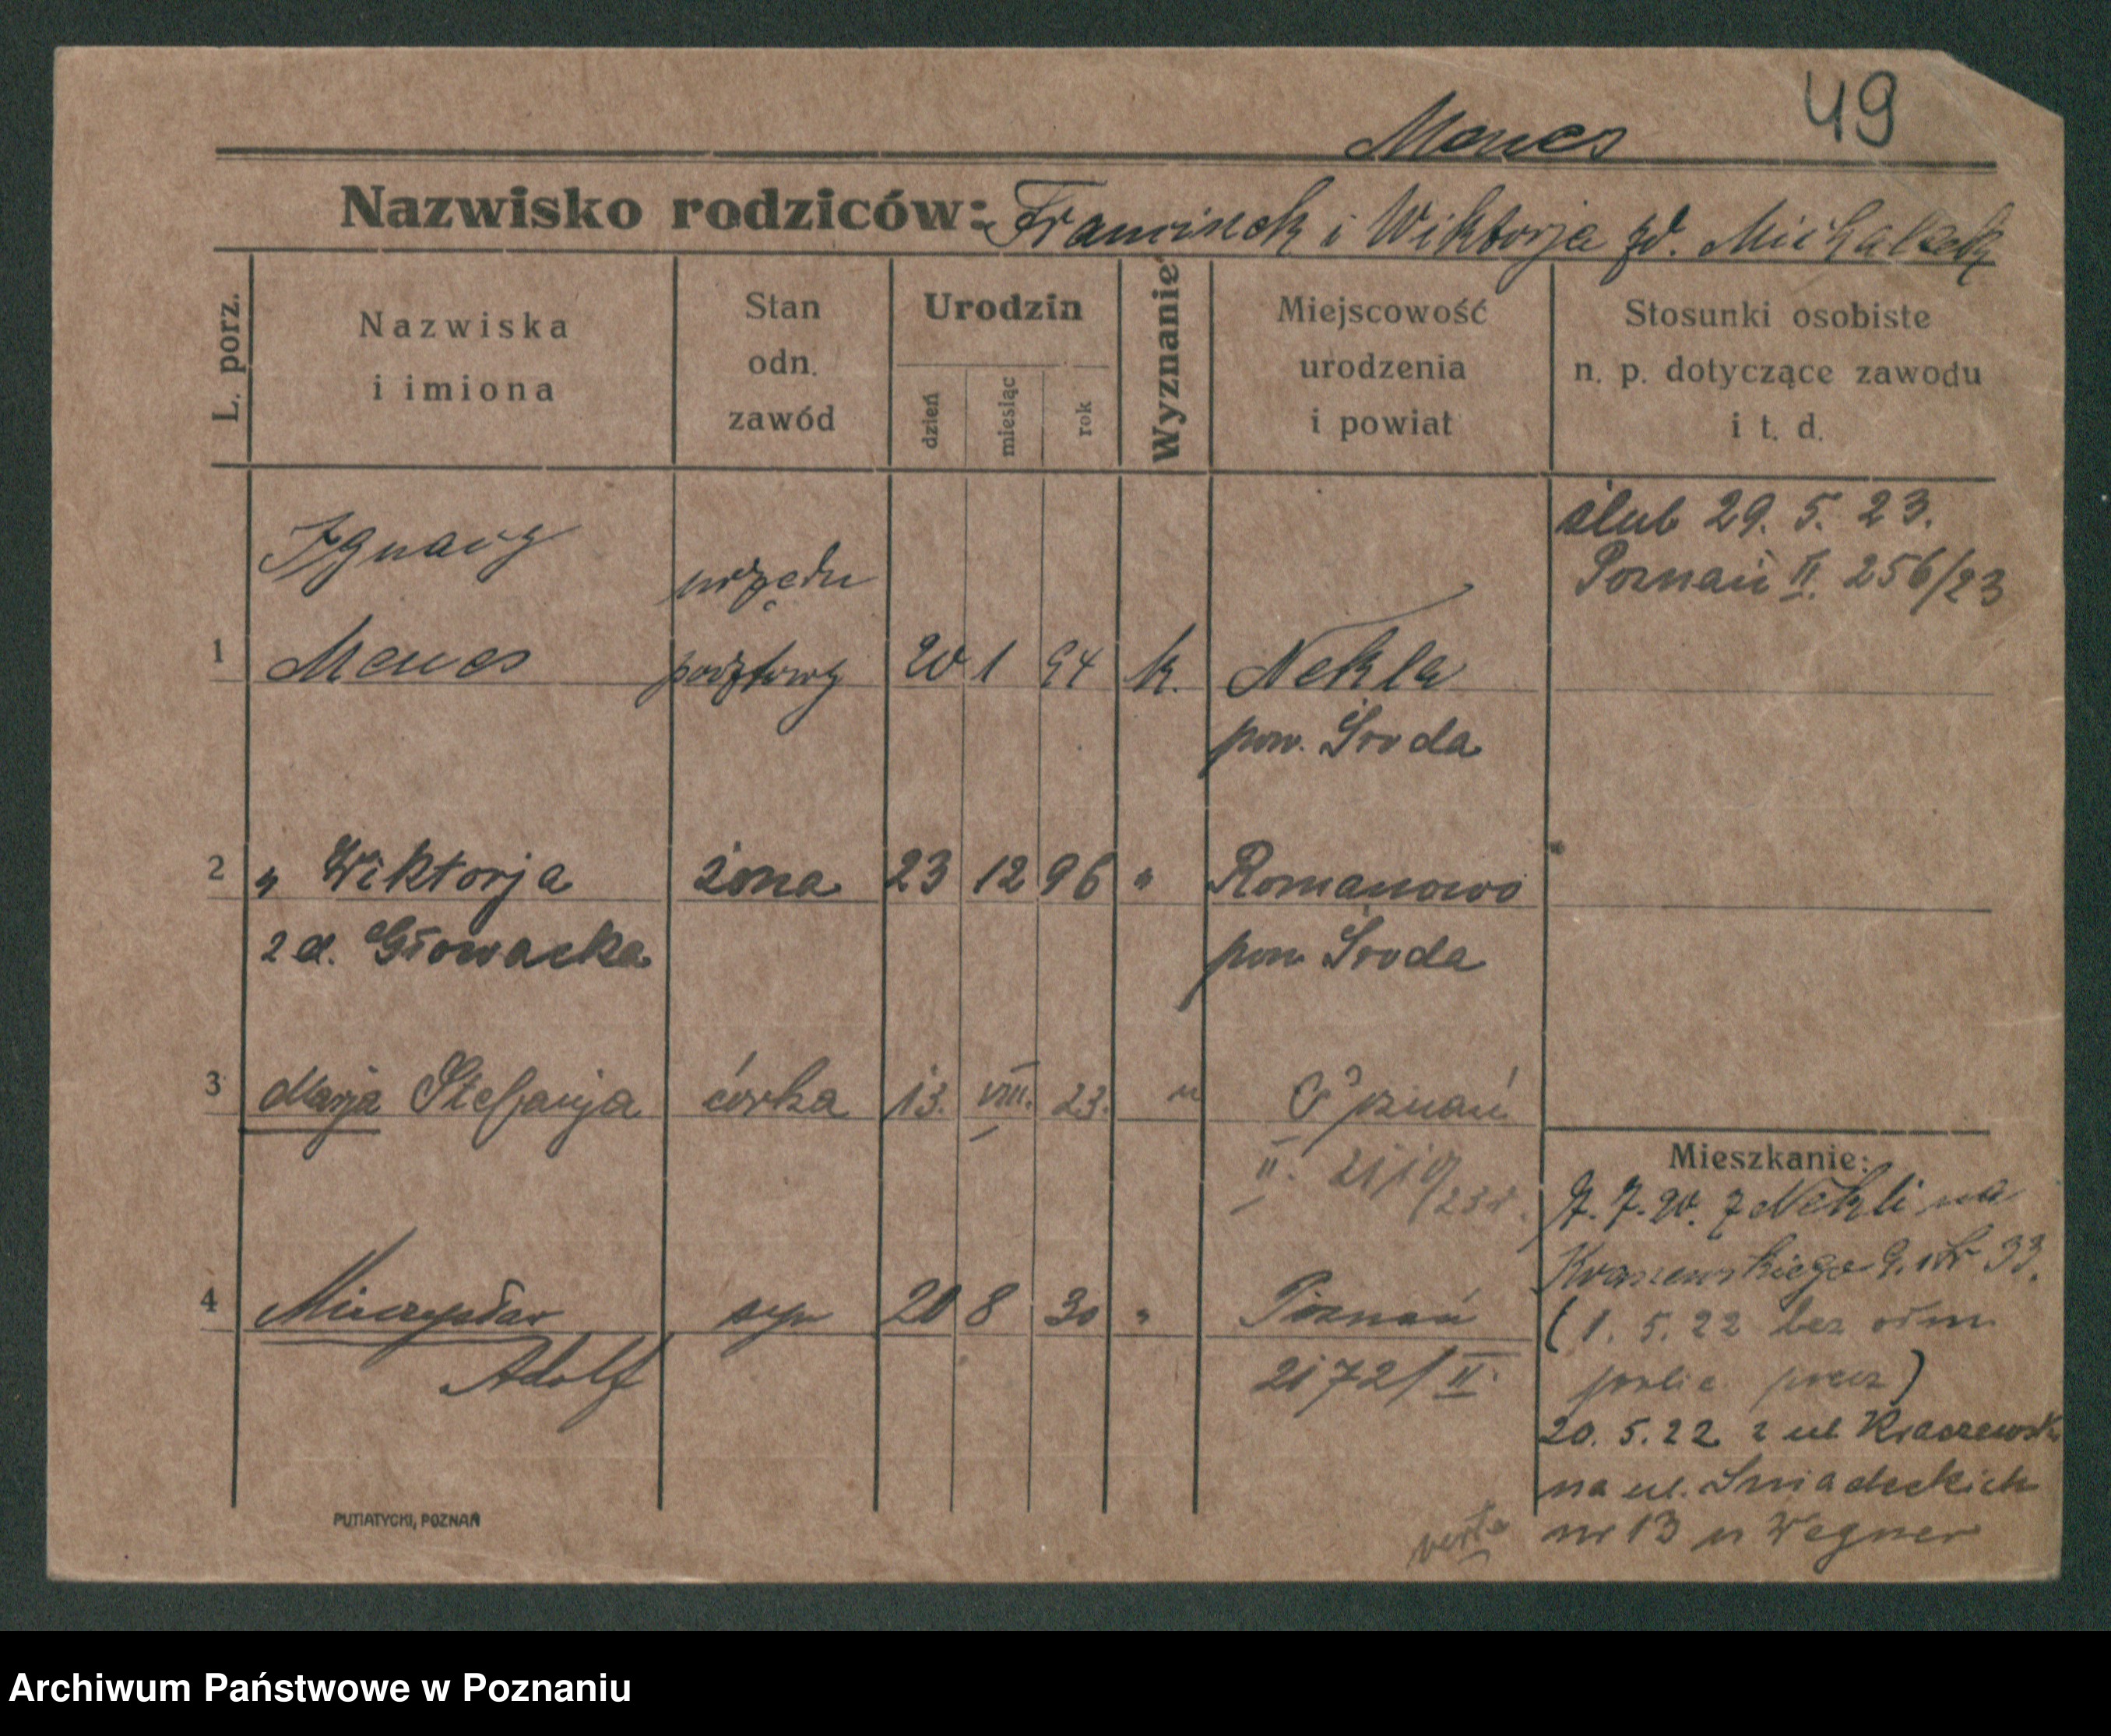 49
Menes
Nazwisko rodziców: Franciszek i Wiktorja zd. Michalczak
L. porz.
Nazwiska
i imiona
Stan
odn.
zawód
Urodzin
dzień
miesiąc
rok
Wyznanie
Miejscowość
urodzenia
i powiat
Stosunki osobiste
n. p. dotyczące zawodu
i t. d.
ślub 29. 5. 23.
Poznań II. 256/23
Ignacy urzędn
1 Menes pocztowy 20 1 94 k. Nekla
pow. Środa
2 " Wiktorja żona 23 12 96 " Romanowo
zd. Głowacka pow Środa
3 Marja Stefanja córka 13. VIII. 23. " Poznań
II.
4 Mieczysław syn 20 8 30 " Poznań
Adolf 2172/II.
Mieszkanie:
7. 20. z Nekli na
Kraszewskiego 9. 33.
(1. 5. 22 bez
przez)
20. 5. 22 z ul Kraszewsk
na ul. Śniadeckich
nr 13 u Wegner
verte
PUTIATYCKI, POZNAŃ
Archiwum Państwowe w Poznaniu